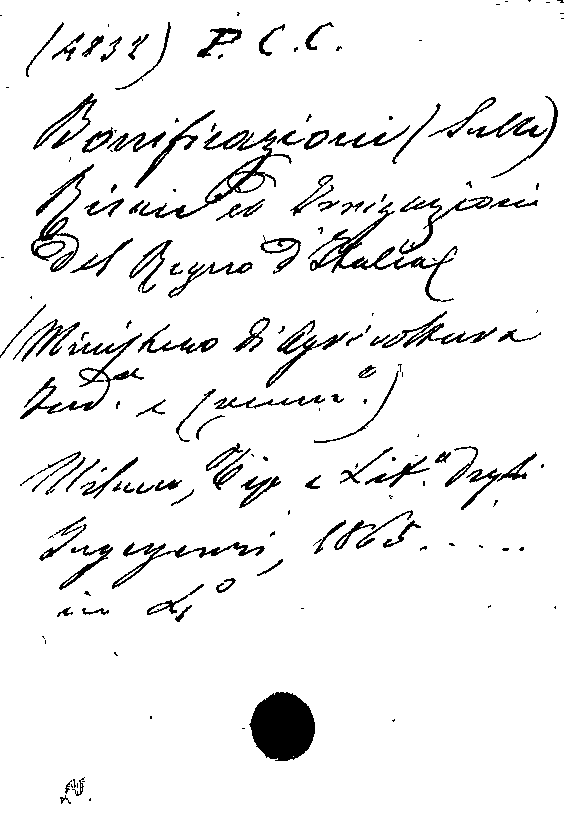 (4832) P. C. C.
Bonificazioni (Sulle)
Risaie ed Irrigazioni
del Regno d'Italia
(Ministero di Agricoltura
Ind.ª e Comm.º)
Milano, Tip e Lit.ª degli
Ingegneri, 1865.....
in 4º